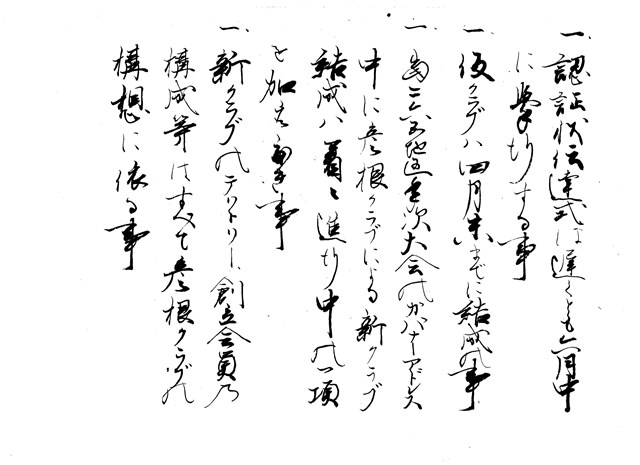 一、認証状伝達式は遅くとも六月中
に挙行する事
一、仮クラブハ四月末までに結成の事
一、三六〇地区年次大会のガバナーアドレス
中に彦根クラブによる新クラブ
結成ハ着々進行中の一項
を加える事
一、新クラブのテリトリー、創立会員の
構成等はすべて彦根クラブの
構想に依る事